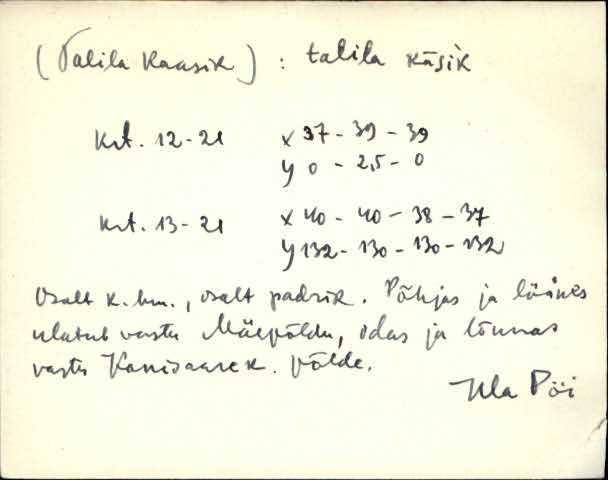 (Talila Kaasik) : talila kāsik
Krt. 12-21 x 37 - 39 - 39
y 0 - 2,5 - 0
Krt. 13-21 x 40 - 40 - 38 - 37
y 132 - 130 - 130 - 132
Osalt k. hm., osalt padrik. Põhjas ja läänes
ulatub vastu Mäepõldu, idas ja lõunas
vastu Kanisaare k. põlde.
Ula Pöi